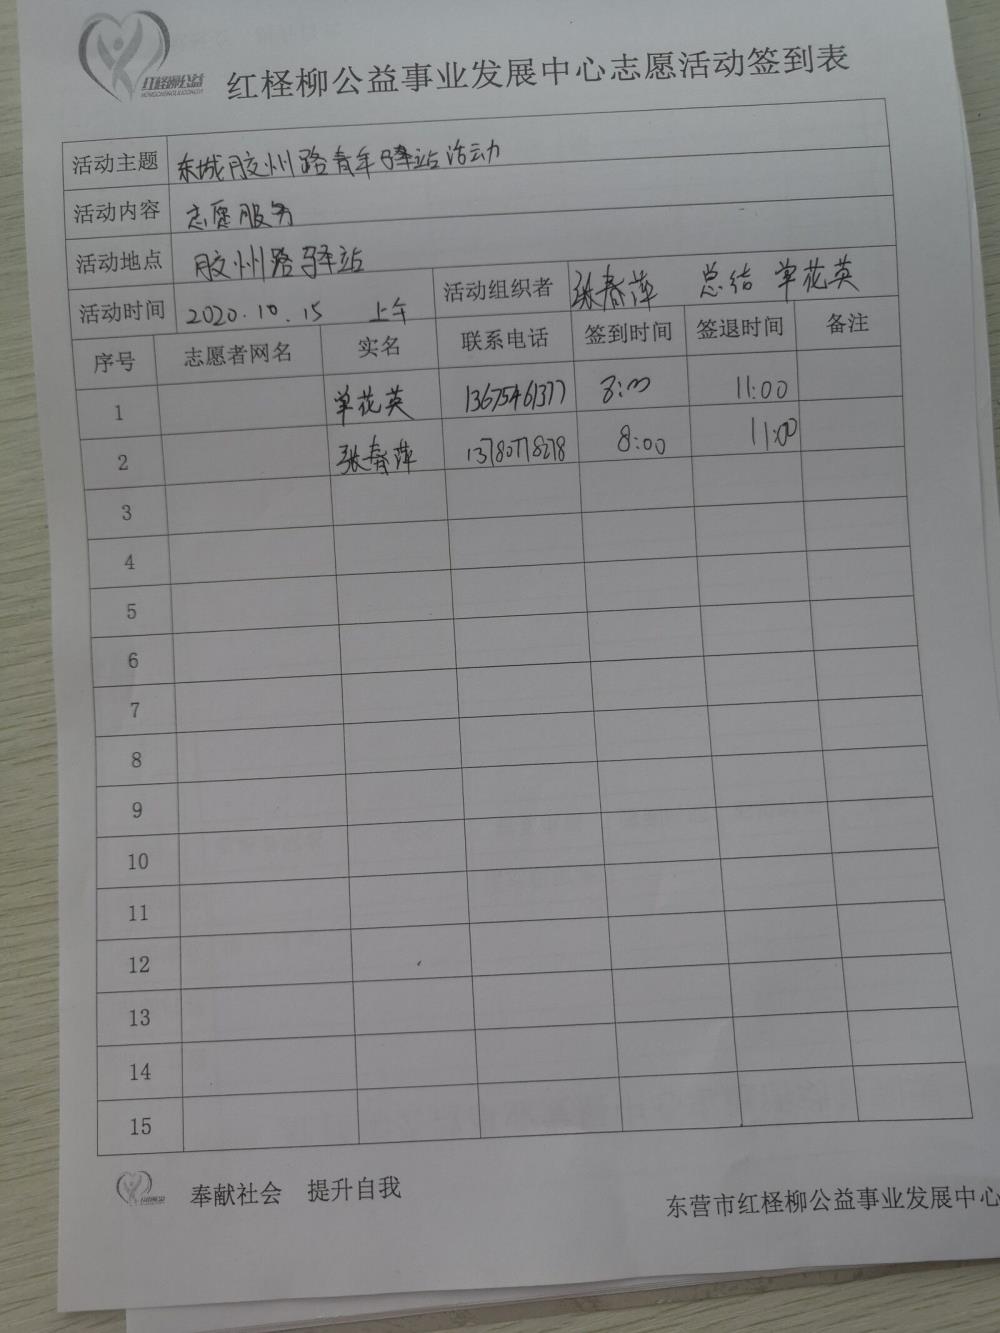 红柽柳公益
红柽柳公益事业发展中心志愿活动签到表
活动主题 东城胶州路青年驿站活动
活动内容 志愿服务
活动地点 胶州路驿站
活动时间 2020.10.15 上午 活动组织者 张春萍 总结 单花英
序号 志愿者网名 实名 联系电话 签到时间 签退时间 备注
1 单花英 13675461377 8:00 11:00
2 张春萍 13780778278 8:00 11:00
3
4
5
6
7
8
9
10
11
12
13
14
15
奉献社会 提升自我
东营市红柽柳公益事业发展中心